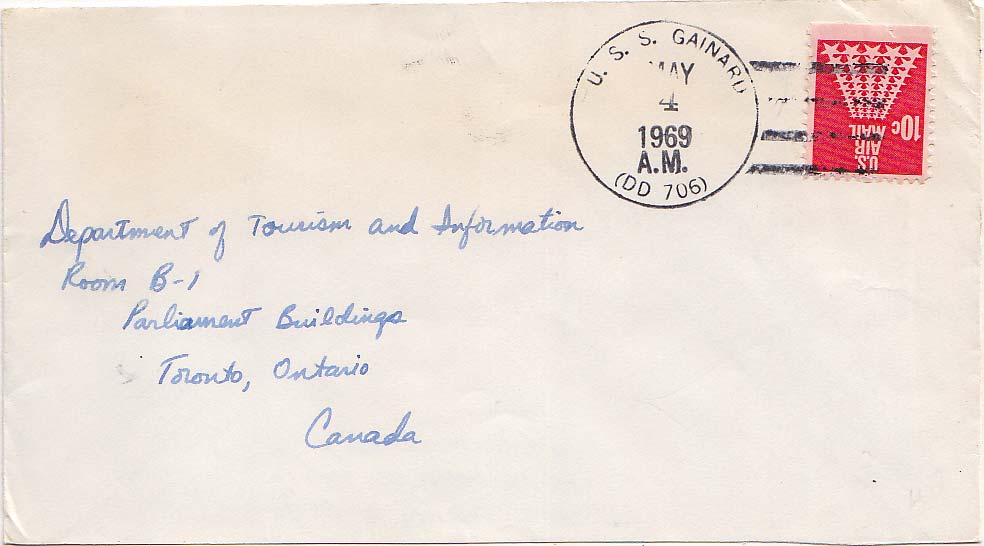 U. S. S. GAINARD
MAY
4
1969
A.M.
(DD 706)
10c
U.S.
AIR
MAIL
Department of Tourism and Information
Room B-1
Parliament Buildings
Toronto, Ontario
Canada